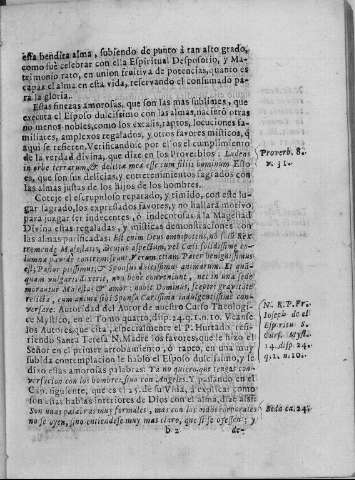 esta bendita alma, subiendo de punto à tan alto grado,
como fuè celebrar con ella Espiritual Desposorio, y Ma-
trimonio rato, en union fruitiva de potencias, quanto es
capàs el alma en esta vida, reservando el consumado pa-
ra la gloria.
Estas finezas amorosas, que son las mas sublimes, que
executa el Esposo dulcissimo con las almas, nacierō otras
no menos nobles, como los extasis, raptos, locuciones fa-
miliares, amplexos regalados, y otros favores misticos, q̄
aqui se refieren. Verificandose por ellos el cumplimiento
de la verdad divina, que dize en los Proverbios: Ludens
in orbe terrarum, & deliciæ meæ esse cum filijs hominum. Esto
es, que son sus delicias, y entretenimientos sagrados con
las almas justas de los hijos de los hombres.
Proverb. 8.
v. 31.
Coteje el escrupuloso reparador, y timido, con este lu-
gar sagrado, los expressados favores, y no hallarà motivo
para juzgar ser indecentes, ò indecorosas à la Magestad
Divina estas regaladas, y misticas demonstraciones con
las almas purificadas: Est enim Deus omnipotens,
Majestatis, divinus aspectum, vel Cœli solidissimæ co-
lumnæ pavidè contremiscunt. Verum etiam Pater benignissimus
est, Pastor pijssimus, & Sponsus dulcissimus animarum. Et
quam vulgaris dicerit, non benè conveniunt, nec in una sede
morantur Majestas & amor: nubit Dominus, sceptri gravitate
relicta, cum anima sibi Sponsa Carissima indulgentissimè con-
versere. Autoridad del Autor de nuestro Curso Theologi-
co Mystico, en el Tomo quarto, disp. 24. q. 1. n. 10. Veanse
los Autores, que cita, especialmente el P. Hurtado refi-
riendo Santa Teresa N. Madre los favores, que le hizo el
Señor en el primer arrobamiento, ò rapto, en una muy
subida contemplacion le hablò el Esposo dulcissimo, y le
dixo estas amorosas palabras: Ya no quiero, que tengas con-
versacion con los hombres, sino con Angeles. Y passando en el
Cap. siguiente, que es el 25. de su Vida, à explicar como
son estas hablas interiores de Dios con el alma, dize assi:
Son unas palabras muy formadas, mas con los oidos corporales
no se oyen, sino entiendese muy mas claro, que si se oyessen; y
N. R. P. Fr.
Joseph de el
Espiritu S.
Curs. Myst.
14. disp. 24.
q. 1. n. 10.
cap. 24.
D 2
de-